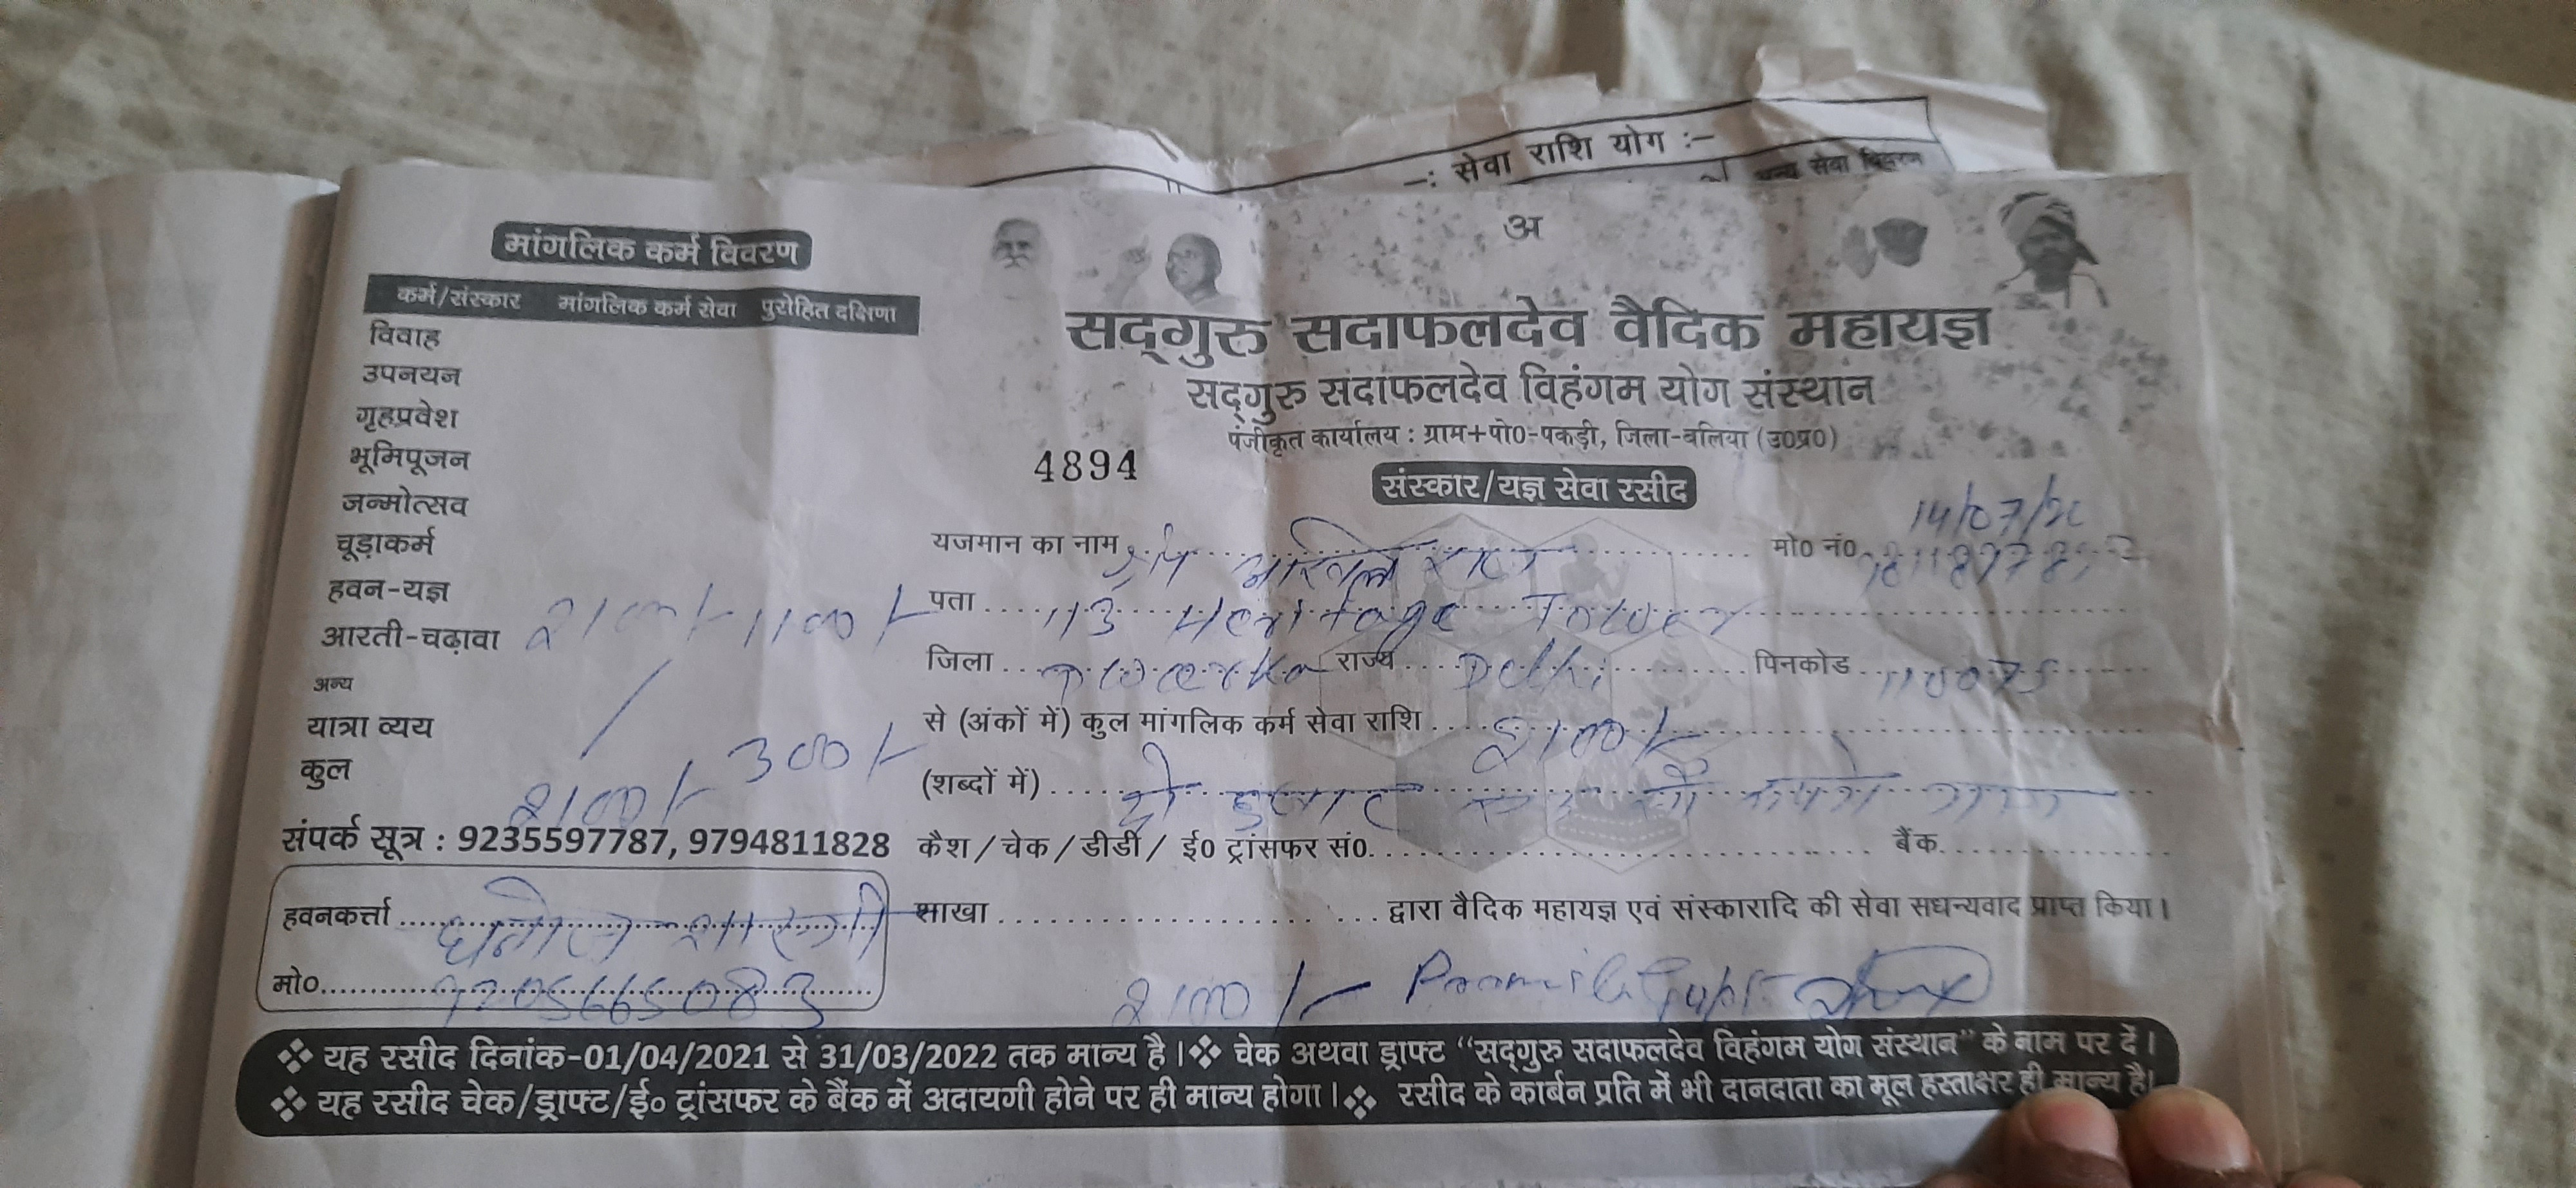 -: सेवा राशि योग :-
अन्य सेवा विवरण
मांगलिक कर्म विवरण
कर्म/संस्कार मांगलिक कर्म सेवा पुरोहित दक्षिणा
विवाह
उपनयन
गृहप्रवेश
भूमिपूजन
जन्मोत्सव
चूड़ाकर्म
हवन-यज्ञ
आरती-चढ़ावा 2100/- 1100/-
अन्य
यात्रा व्यय 300/-
कुल 2100/-
संपर्क सूत्र : 9235597787, 9794811828
हवनकर्त्ता शास्त्री
मो०
अ
सद्गुरु सदाफलदेव वैदिक महायज्ञ
सद्गुरु सदाफलदेव विहंगम योग संस्थान
पंजीकृत कार्यालय : ग्राम+पो0-पकड़ी, जिला-बलिया (उ0प्र0)
4894
संस्कार/यज्ञ सेवा रसीद
14/07/
यजमान का नाम श्री मो0 नं0
पता 113 Heritage Tower
जिला Dwerka राज्य Delhi पिनकोड 110075
से (अंकों में) कुल मांगलिक कर्म सेवा राशि 2100/-
(शब्दों में) दो हजार एक सौ रुपये मात्र
कैश / चेक / डीडी / ई0 ट्रांसफर सं0. बैंक
शाखा द्वारा वैदिक महायज्ञ एवं संस्कारादि की सेवा सधन्यवाद प्राप्त किया।
2100/-
❖ यह रसीद दिनांक-01/04/2021 से 31/03/2022 तक मान्य है। ❖ चेक अथवा ड्राफ्ट “सद्गुरु सदाफलदेव विहंगम योग संस्थान” के नाम पर दें।
❖ यह रसीद चेक/ड्राफ्ट/ई० ट्रांसफर के बैंक में अदायगी होने पर ही मान्य होगा। ❖ रसीद के कार्बन प्रति में भी दानदाता का मूल हस्ताक्षर ही मान्य है।